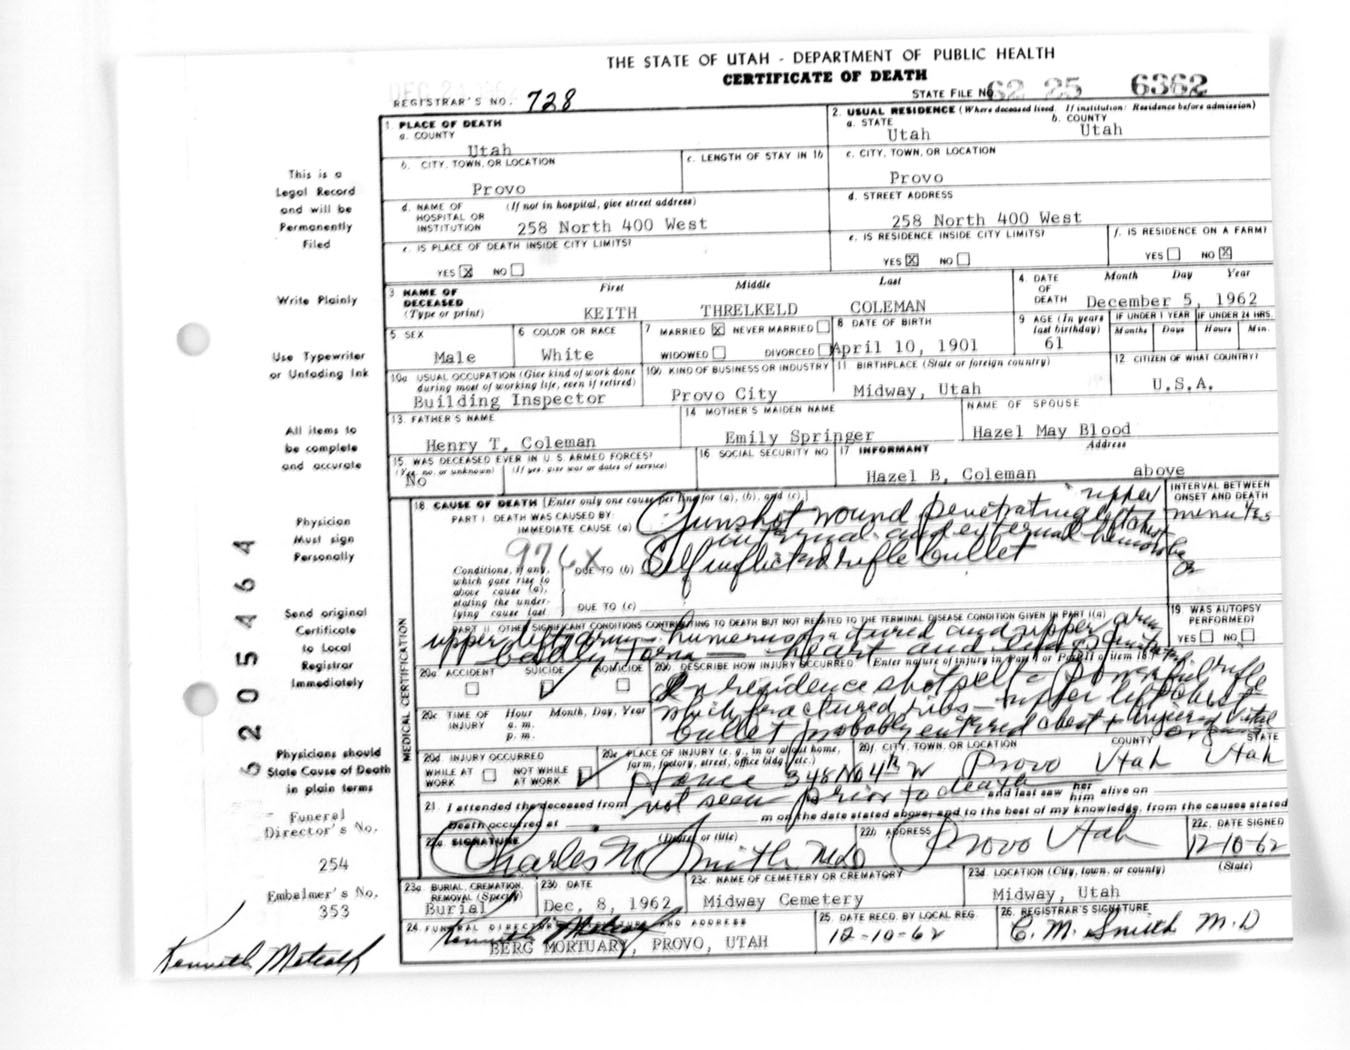 THE STATE OF UTAH - DEPARTMENT OF PUBLIC HEALTH
CERTIFICATE OF DEATH
REGISTRAR'S NO. 728
STATE FILE NO. 62 25 6362
This is a
Legal Record
and will be
Permanently
Filed
Write Plainly
Use Typewriter
or Unfading Ink
All items to
be complete
and accurate
Physician
Must sign
Personally
Send original
Certificate
to Local
Registrar
Immediately
Physicians should
State Cause of Death
in plain terms
Funeral
Director's No.
254
Embalmer's No.
353
Kenneth Metcalf
6205464
1 PLACE OF DEATH
a. COUNTY
Utah
b. CITY, TOWN, OR LOCATION
Provo
c. LENGTH OF STAY IN 1b
d. NAME OF HOSPITAL OR INSTITUTION (If not in hospital, give street address)
258 North 400 West
e. IS PLACE OF DEATH INSIDE CITY LIMITS?
YES X NO
2. USUAL RESIDENCE (Where deceased lived. If institution: Residence before admission)
a. STATE
Utah
b. COUNTY
Utah
c. CITY, TOWN, OR LOCATION
Provo
d. STREET ADDRESS
258 North 400 West
e. IS RESIDENCE INSIDE CITY LIMITS?
YES X NO
f. IS RESIDENCE ON A FARM?
YES NO X
3 NAME OF DECEASED (Type or print)
First Middle Last
KEITH THRELKELD COLEMAN
4 DATE OF DEATH Month Day Year
December 5, 1962
5 SEX
Male
6 COLOR OR RACE
White
7 MARRIED X NEVER MARRIED
WIDOWED DIVORCED
8 DATE OF BIRTH
April 10, 1901
9 AGE (In years last birthday)
61
IF UNDER 1 YEAR Months Days
IF UNDER 24 HRS. Hours Min.
10a USUAL OCCUPATION (Give kind of work done during most of working life, even if retired)
Building Inspector
10b KIND OF BUSINESS OR INDUSTRY
Provo City
11 BIRTHPLACE (State or foreign country)
Midway, Utah
12 CITIZEN OF WHAT COUNTRY?
U.S.A.
13. FATHER'S NAME
Henry T. Coleman
14 MOTHER'S MAIDEN NAME
Emily Springer
NAME OF SPOUSE
Hazel May Blood
15 WAS DECEASED EVER IN U.S. ARMED FORCES?
(Yes, no, or unknown) (If yes, give war or dates of service)
No
16 SOCIAL SECURITY NO
17 INFORMANT Address
Hazel B. Coleman above
MEDICAL CERTIFICATION
18 CAUSE OF DEATH [Enter only one cause per line for (a), (b), and (c).]
INTERVAL BETWEEN ONSET AND DEATH
PART I. DEATH WAS CAUSED BY:
IMMEDIATE CAUSE (a) Gunshot wound penetrating upper left chest
internal and external hemorrhage
minutes
976X
Conditions, if any, which gave rise to above cause (a), stating the underlying cause last
DUE TO (b) Self inflicted rifle bullet
DUE TO (c)
PART II. OTHER SIGNIFICANT CONDITIONS CONTRIBUTING TO DEATH BUT NOT RELATED TO THE TERMINAL DISEASE CONDITION GIVEN IN PART I(a)
upper left arm - humerus fractured and upper arm
badly torn - heart and
19 WAS AUTOPSY PERFORMED?
YES NO
20a ACCIDENT SUICIDE HOMICIDE
20b. DESCRIBE HOW INJURY OCCURRED. (Enter nature of injury in Part I or Part II of item 18.)
In residence shot self - powerful rifle
which fractured ribs - upper left chest
bullet probably entered chest + injured vital organs
20c TIME OF INJURY Hour Month, Day, Year
a. m.
p. m.
20d. INJURY OCCURRED
WHILE AT WORK NOT WHILE AT WORK
20e PLACE OF INJURY (e. g., in or about home, farm, factory, street, office bldg., etc.)
20f. CITY, TOWN, OR LOCATION COUNTY STATE
House 348 No 4th W Provo Utah Utah
21. I attended the deceased from not seen prior to death and last saw her him alive on
Death occurred at m on the date stated above; and to the best of my knowledge, from the causes stated
22a SIGNATURE (Degree or title)
Charles M. Smith MD
22b ADDRESS
Provo Utah
22c. DATE SIGNED
12-10-62
23a BURIAL, CREMATION, REMOVAL (Specify)
Burial
23b DATE
Dec. 8, 1962
23c. NAME OF CEMETERY OR CREMATORY
Midway Cemetery
23d. LOCATION (City, town, or county) (State)
Midway, Utah
24 FUNERAL DIRECTOR'S SIGNATURE AND ADDRESS
Kenneth Metcalf
BERG MORTUARY, PROVO, UTAH
25. DATE RECD. BY LOCAL REG.
12-10-62
26. REGISTRAR'S SIGNATURE
C. M. Smith M.D